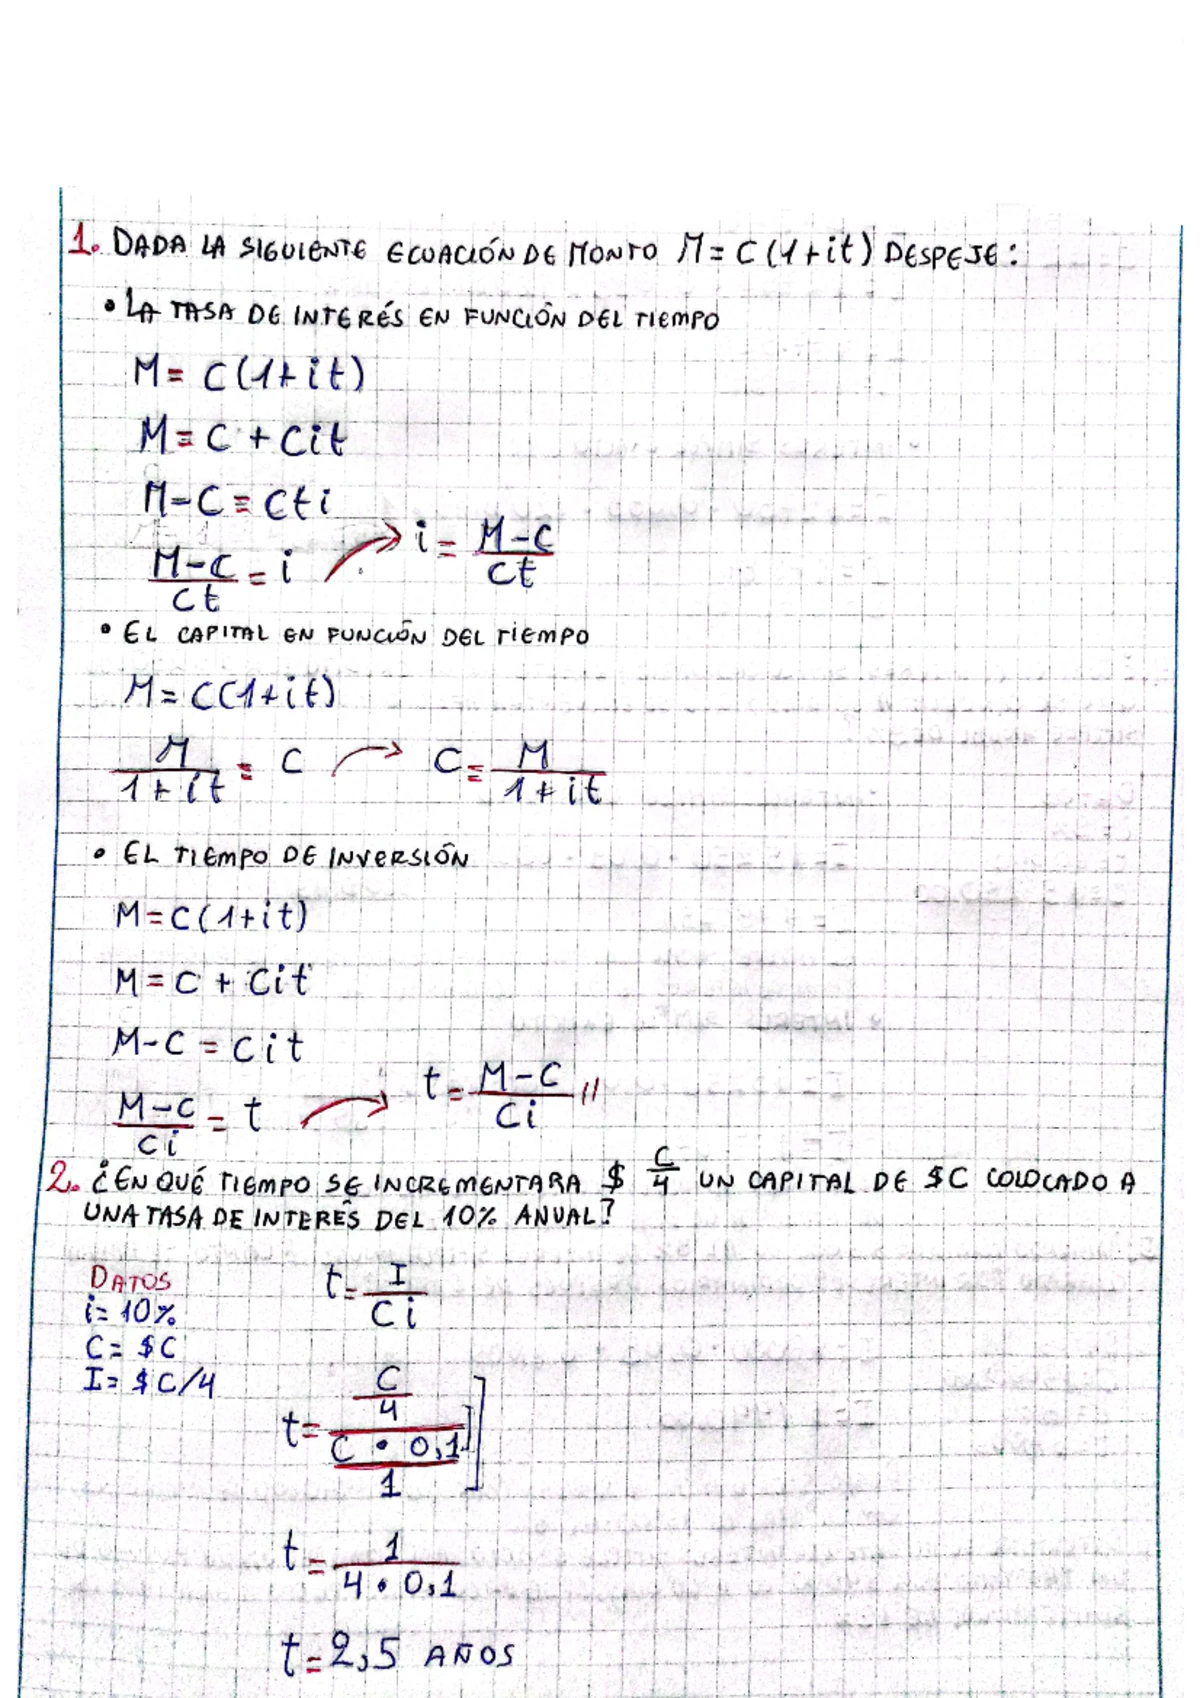 1. DADA LA SIGUIENTE ECUACIÓN DE MONTO M = C (1 + it) DESPEJE:
• LA TASA DE INTERÉS EN FUNCIÓN DEL TIEMPO
M = C(1 + it)
M = C + Cit
M - C = Cti
(M - C)/Ct = i → i = (M - C)/Ct
• EL CAPITAL EN FUNCIÓN DEL TIEMPO
M = C(1 + it)
M/(1 + it) = C → C = M/(1 + it)
• EL TIEMPO DE INVERSIÓN
M = C(1 + it)
M = C + Cit
M - C = Cit
(M - C)/Ci = t → t = (M - C)/Ci //
2. ¿EN QUÉ TIEMPO SE INCREMENTARA $ C/4 UN CAPITAL DE $C COLOCADO A
UNA TASA DE INTERÉS DEL 10% ANUAL?
DATOS
i = 10%
C = $C
I = $C/4
t = I/Ci
t = (C/4)/((C • 0,1)/1)
t = 1/(4 • 0,1)
t = 2,5 AÑOS